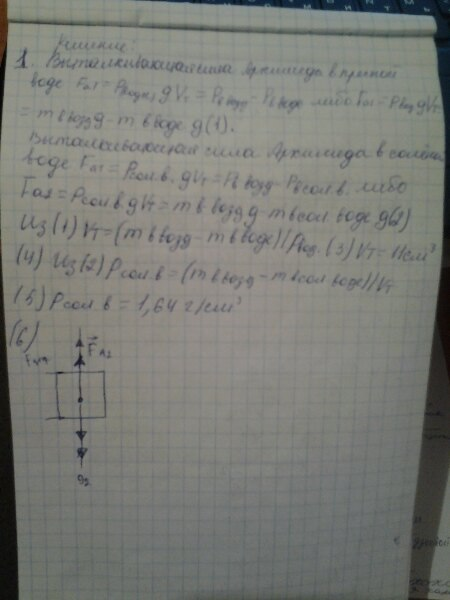 Решение:
1. Выталкивающая сила Архимеда в пресной
воде Fа1 = Рводы g Vт = Рв возд - Рв воде либо Fа1 = Рвод gVт
= m в возд g - m в воде g (1).
Выталкивающая сила Архимеда в солёной
воде Fа1 = Рсол в. gVт = Рв возд - Рв сол в. либо
Fа2 = Рсол в gVт = m в возд g - m в сол воде g(2)
Из (1) Vт = (m в возд - m в воде)/Рвод. (3) Vт = 11 см³
(4) Из (2) Рсол в = (m в возд - m в сол воде)/Vт
(5) Рсол в = 1,64 г/см³
(6)
F А2